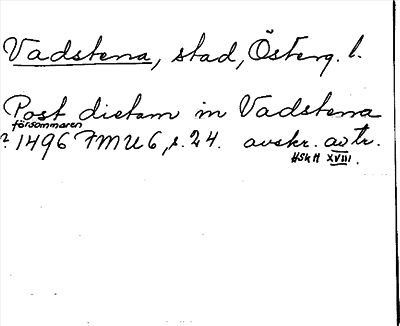 Vadstena, stad, Österg. l.
Post dietam in Vadstena
försommaren
? 1496 FMU 6, s. 24. avskr. av tr.
HSkH XVIII.